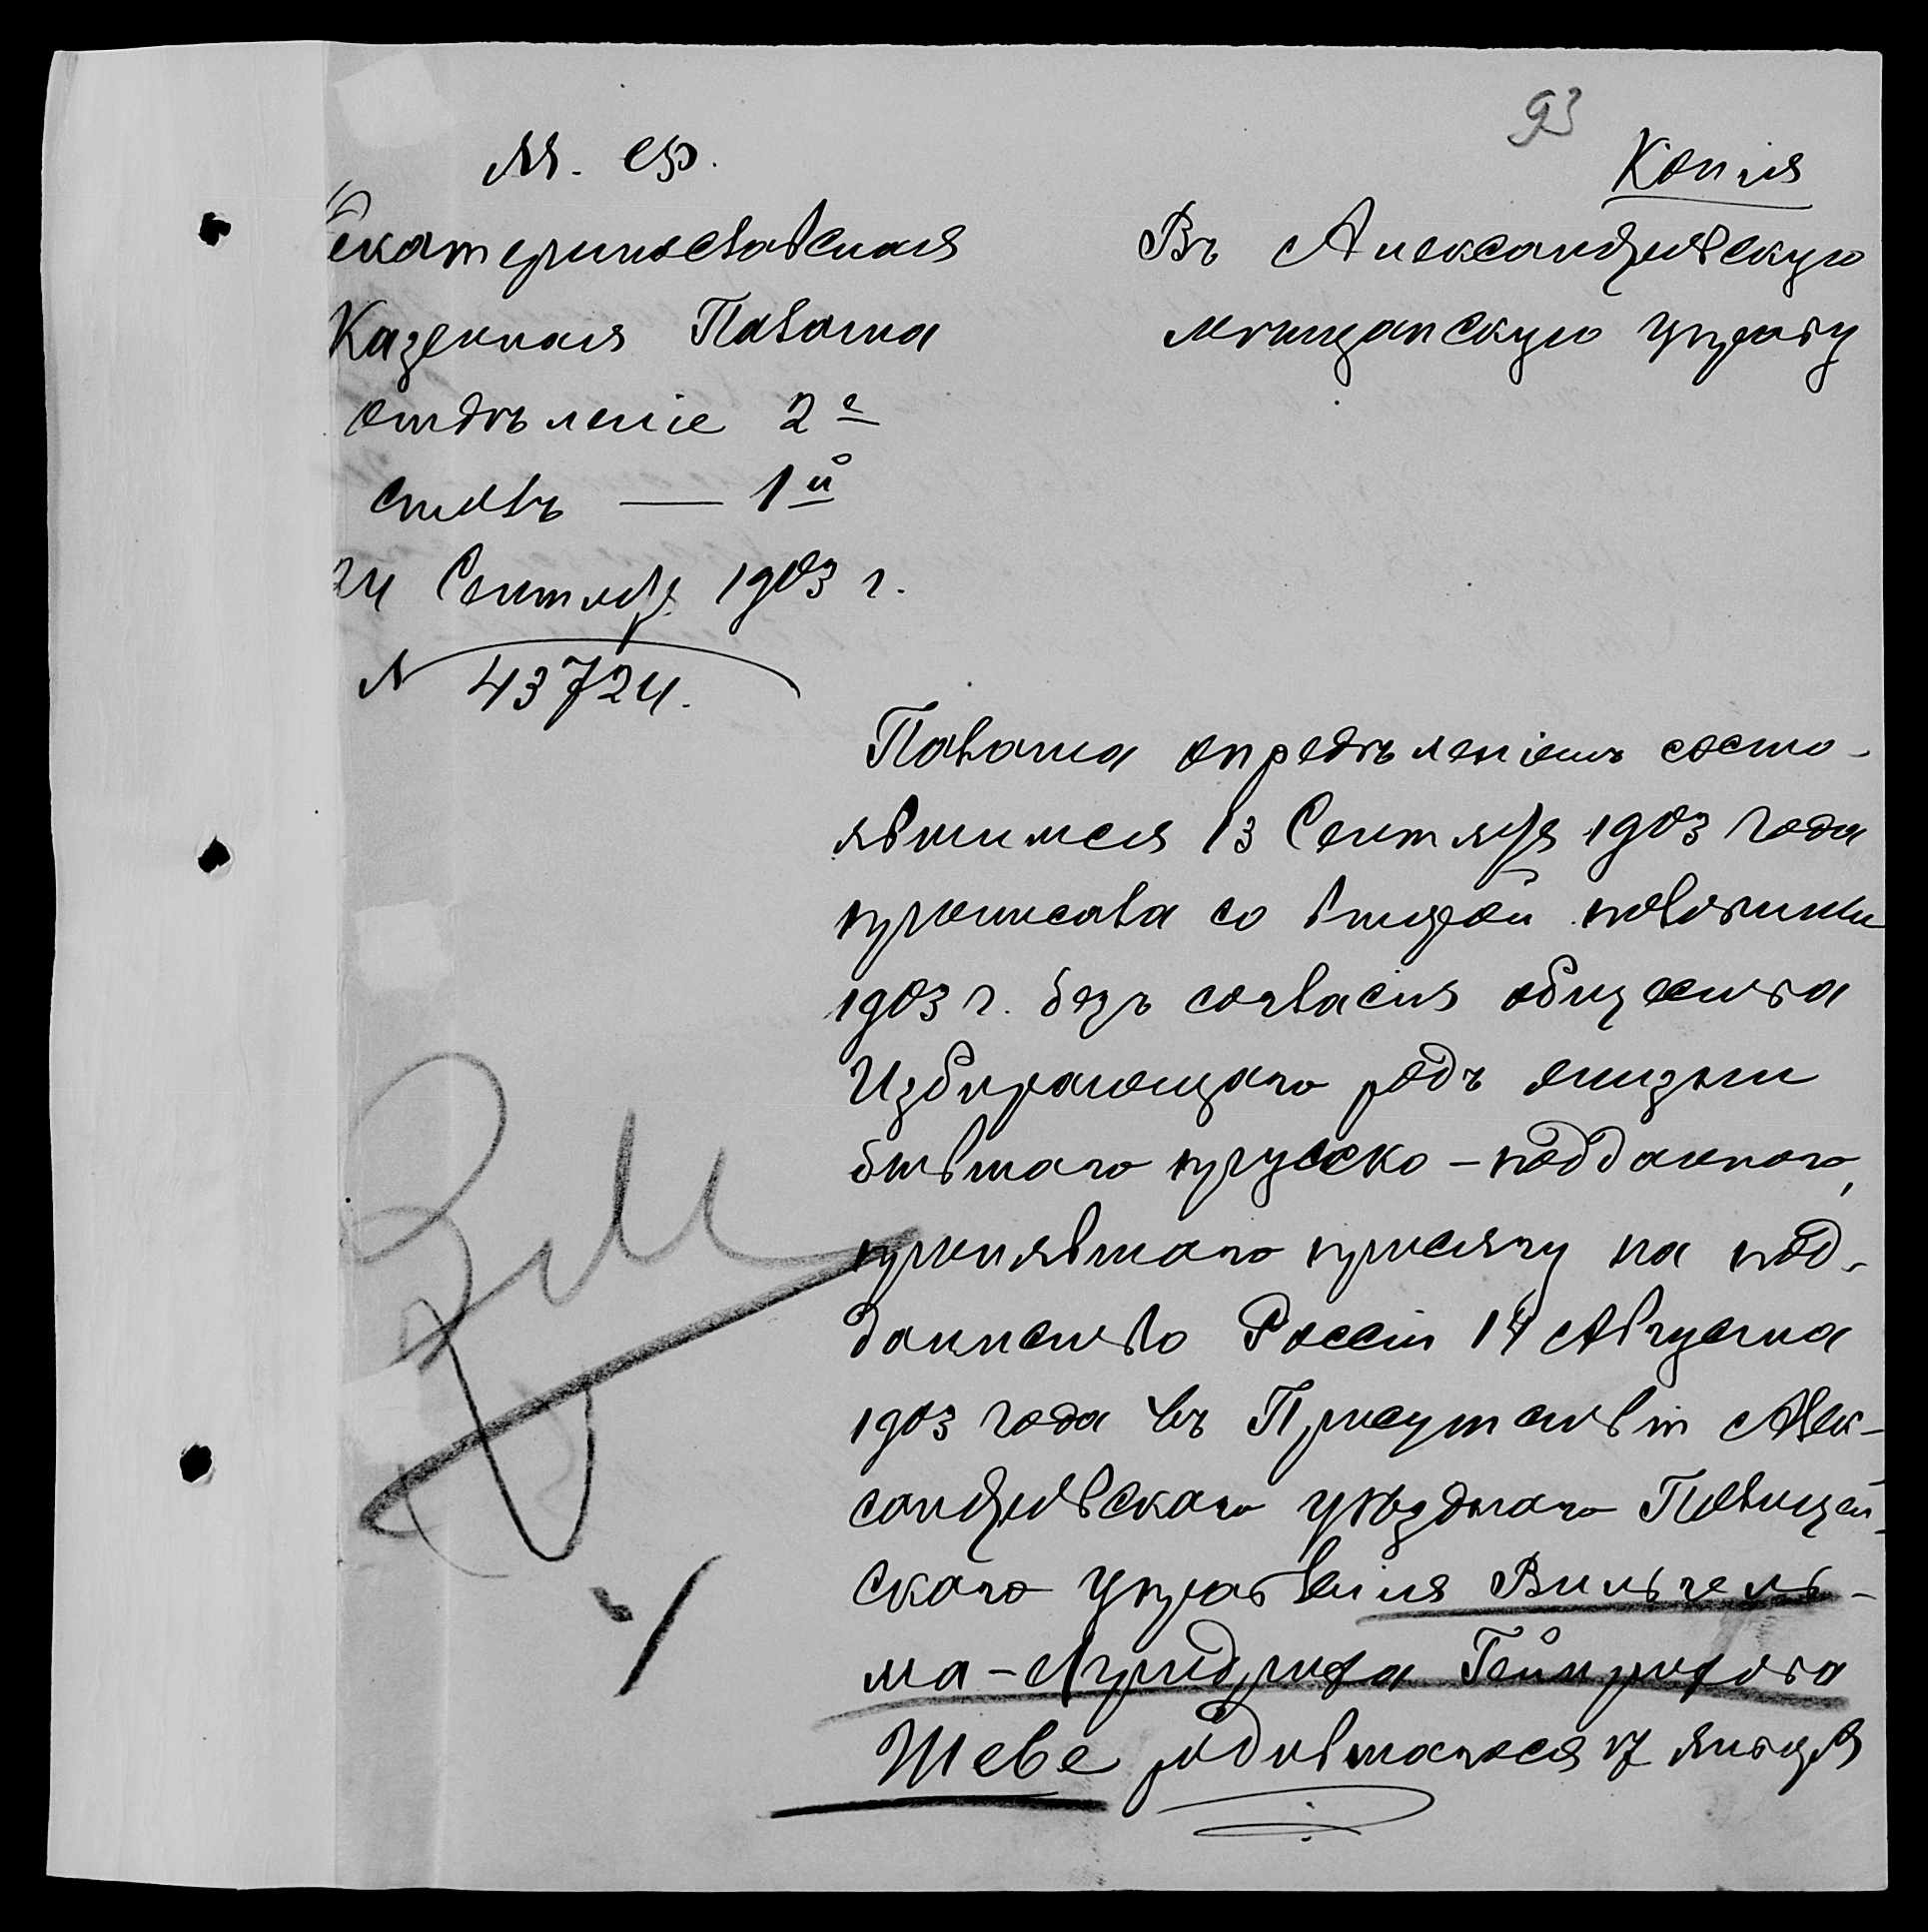 93
Копія
М. Ф.
Екатеринославская
Казенная Палата
отдѣленіе 2е
столъ — 1й
24 Сентября 1903 г.
№ 43724.
Въ Александровскую
мѣщанскую управу
Палата опредѣленіемъ состо-
явшимся 13 Сентября 1903 года
причислила со второй половины
1903 г. безъ согласія общества
Избирающаго родъ жизни
бывшаго прусско-подданнаго,
принявшаго присягу на под-
данство Россіи 14 Августа
1903 года въ Присутствіи Алек-
сандровскаго уѣзднаго Полицей-
скаго Управленія Вильгель-
ма-Фридриха Гейнрихова
Шеве родившагося 17 января